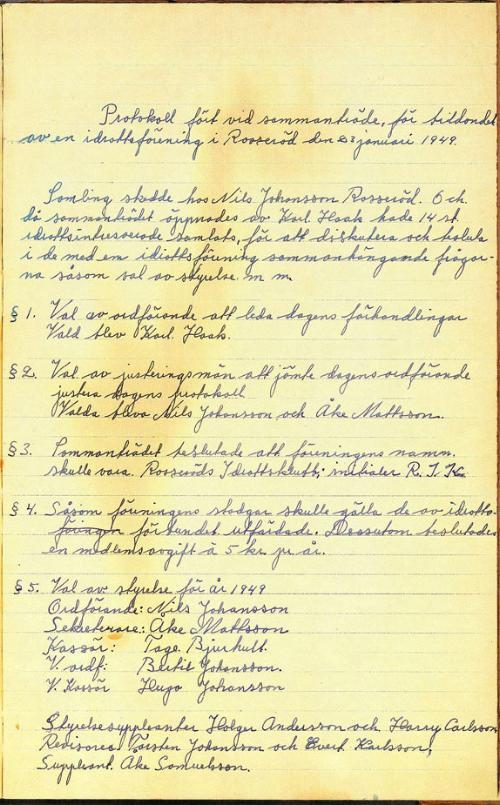 Protokoll fört vid sammanträde, för bildandet
av en idrottsförening i Rosseröd den 23 januari 1949.
Samling skedde hos Nils Johansson Rosseröd. Och
då sammanträdet öppnades av Karl Haak hade 14 st.
idrottsintresserade samlats, för att diskutera och besluta
i de med em idiottsförening sammanhängande frågor-
na såsom val av styrelse m m.
§ 1. Val av ordförande att leda dagens förhandlingar
Vald blev Karl Haak.
§ 2. Val av justeringsmän att jämte dagens ordförande
justera dagens protokoll
Valda blevo Nils Johansson och Åke Mattsson.
§ 3. Sammanträdet beslutade att föreningens namn
skulle vara. Rosseröds Idrottsklubb; initialer R. I. K.
§ 4. Såsom föreningens stadgar skulle gälla de av idrotts-
förbundet utfärdade. Dessutom beslutades
en medlemsavgift à 5 kr. pr år.
§ 5. Val av styrelse för år 1949
Ordförande: Nils Johansson
Sekreterare: Åke Mattsson
Kassör: Tage Bjurhult.
V. ordf: Bertil Johansson.
V. Kassör Hugo Johansson
Styrelsesuppleanter Holger Andersson och Harry Carlsson
Revisorer Torsten Johansson och Evert Karlsson,
Suppleant. Åke Samuelsson.